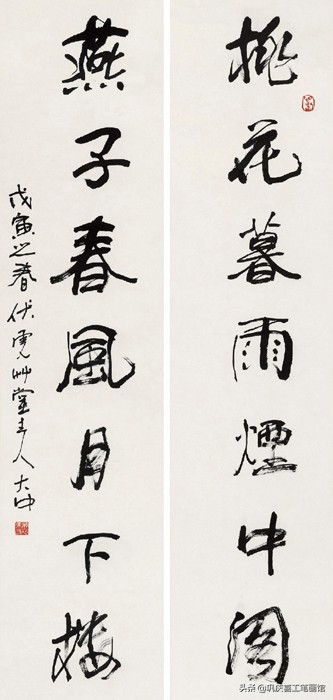 桃花暮雨煙中閣
燕子春風月下樓
戊寅之春伏虎艸堂主人大中
头条 @巩庆喜工笔画馆